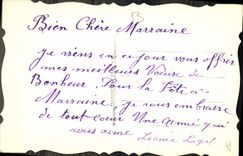 Bien Chère Marraine
Je viens en ce jour vous offrir
mes meilleurs Vœux de
Bonheur. Pour la fête
Marraine je vous embrasse
de tout cœur Une amie qui
vous aime Léonie